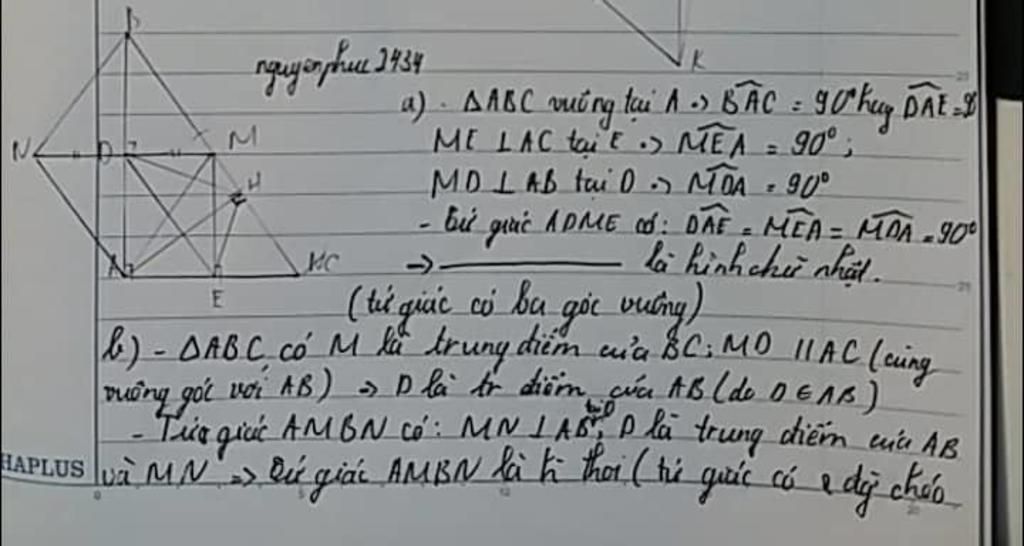 B
K
nguyenphuc2434
a) - ΔABC vuông tại A => BAC = 90° hay DAE = 9
N D M
ME ⊥ AC tại E => MEA = 90°;
H
MD ⊥ AB tại D => MDA = 90°
- Tứ giác ADME có: DAE = MEA = MDA = 90°
A C
-> ———— là hình chữ nhật.
E
(tứ giác có ba góc vuông)
b) - ΔABC có M là trung điểm của BC; MD // AC (cùng
vuông góc với AB) => D là tr điểm của AB (do D ∈ AB)
- Tứ giác AMBN có: MN ⊥ AB tại D; D là trung điểm của AB
HAPLUS
và MN => Tứ giác AMBN là h thoi (tứ giác có 2 đg chéo